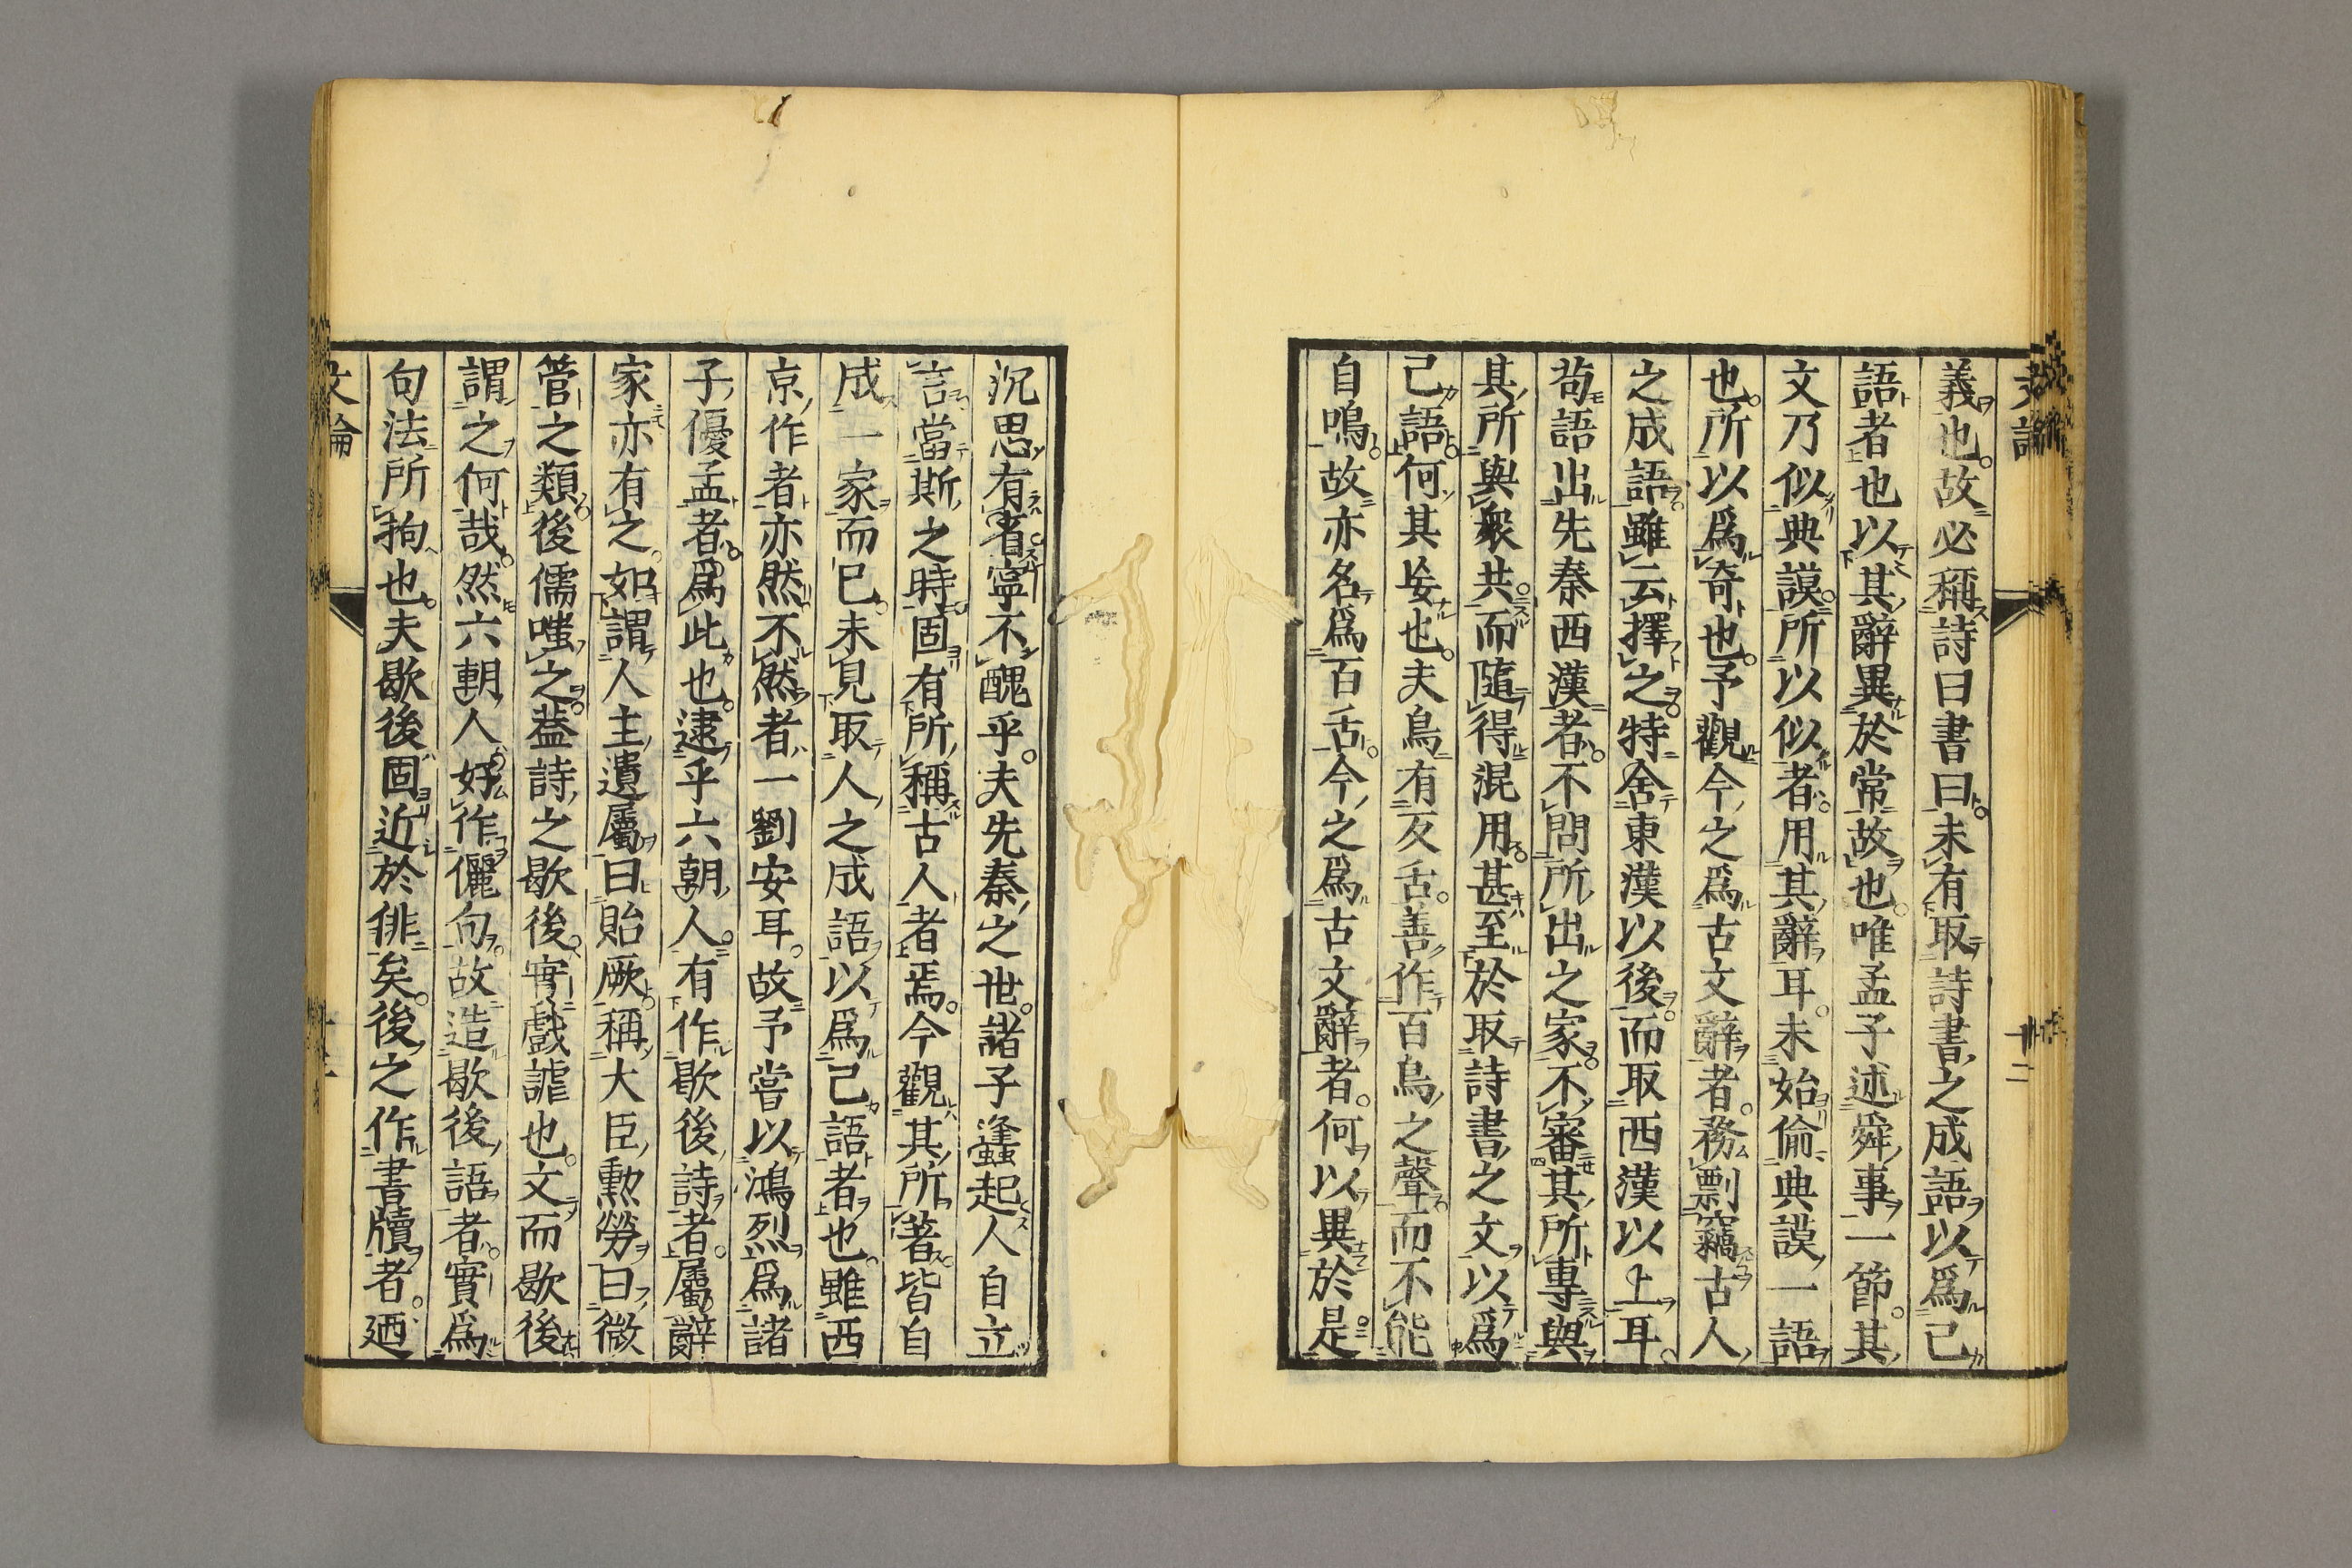 義也故必稱詩曰書曰未有取詩書之成語以爲己
語者也以其辭異於常故也唯孟子述舜事一節其
文乃似典謨所以似者用其辭耳未始偷典謨一語
也所以爲奇也予觀今之爲古文辭者務剽竊古人
之成語雖云擇之特舍東漢以後而取西漢以上耳
苟語出先秦西漢者不問所出之家不審其所專與
其所與衆共而隨得混用甚至於取詩書之文以爲
己語何其妄也夫鳥有反舌善作百鳥之聲而不能
自鳴故亦名爲百舌今之爲古文辭者何以異於是
沉思有省寧不醜乎夫先秦之世諸子蠭起人自立
言當斯之時固有所稱古人者焉今觀其所著皆自
成一家而已未見取人之成語以爲己語者也雖西
京作者亦然不然者一劉安耳故予嘗以鴻烈爲諸
子優孟者爲此也逮乎六朝人有作歇後詩者屬辭
家亦有之如謂人主遺屬曰貽厥稱大臣勲勞曰微
管之類後儒嗤之葢詩之歇後實戲謔也文而歇後
謂之何哉然六朝人好作儷句故造歇後語者實爲
句法所拘也夫歇後固近於俳矣後之作書牘者廼
文論
十二